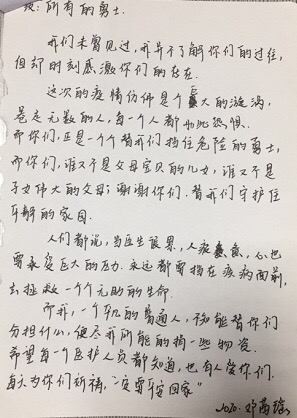 致:所有的勇士.
我们未曾见过,我并不了解你们的过往,
但却时刻感激你们的存在.
这次的疫情仿佛是个巨大的漩涡,
卷走无数的人,每一个人都为此恐惧.
而你们,正是一个个替我们挡住危险的勇士,
而你们,谁又不是父母宝贝的儿女,谁又不是
子女伟大的父母;谢谢你们.替我们守护住
平静的家园.
人们都说,当医生很累,人疲惫,心也
要承受巨大的压力.永远都要挡在疾病面前,
去拯救一个个无助的生命.
而我,一个平凡的普通人,不知能替你们
分担什么,便尽我所能的捐一些物资.
希望每一个医护人员都知道,也有人爱你们.
每天为你们祈祷,"一定要平安回家"
2020.邓茜